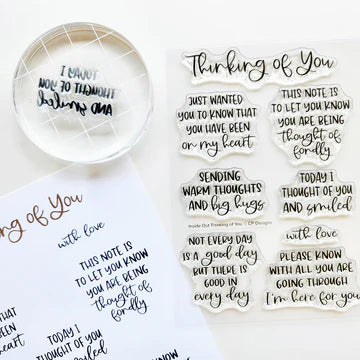 Thinking of You
JUST WANTED
YOU TO KNOW THAT
YOU HAVE BEEN
on my heart
THIS NOTE IS
TO LET YOU KNOW
YOU ARE BEING
thought of
fondly
SENDING
WARM THOUGHTS
AND big hugs
TODAY I
THOUGHT OF YOU
AND smiled
Inside Out: Thinking of You © CP Designs
NOT EVERY DAY
IS A good day
BUT THERE IS
GOOD IN
every day
with love
PLEASE KNOW
WITH ALL YOU ARE
GOING THROUGH
I'm here for you
TODAY I
THOUGHT OF YOU
AND smiled
ng of You
with love
THIS NOTE IS
TO LET YOU KNOW
YOU ARE BEING
thought of
fondly
HAT
EN
heart
TODAY I
THOUGHT OF YOU
smiled